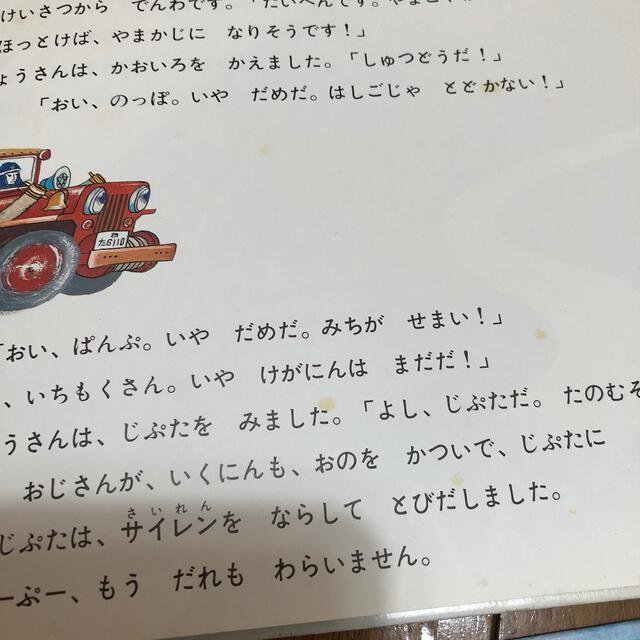 けいさつから でんわです。「たいへんです。
ほっとけば、やまかじに なりそうです！」
ょうさんは、かおいろを かえました。「しゅつどうだ！」
「おい、のっぽ。いや だめだ。はしごじゃ とどかない！」
た6110
「おい、ぱんぷ。いや だめだ。みちが せまい！」
、いちもくさん。いや けがにんは まだだ！」
うさんは、じぷたを みました。「よし、じぷただ。 たのむぞ
おじさんが、いくにんも、おのを かついで、じぷたに
さいれん
じぷたは、サイレンを ならして とびだしました。
ーぷー、もう だれも わらいません。